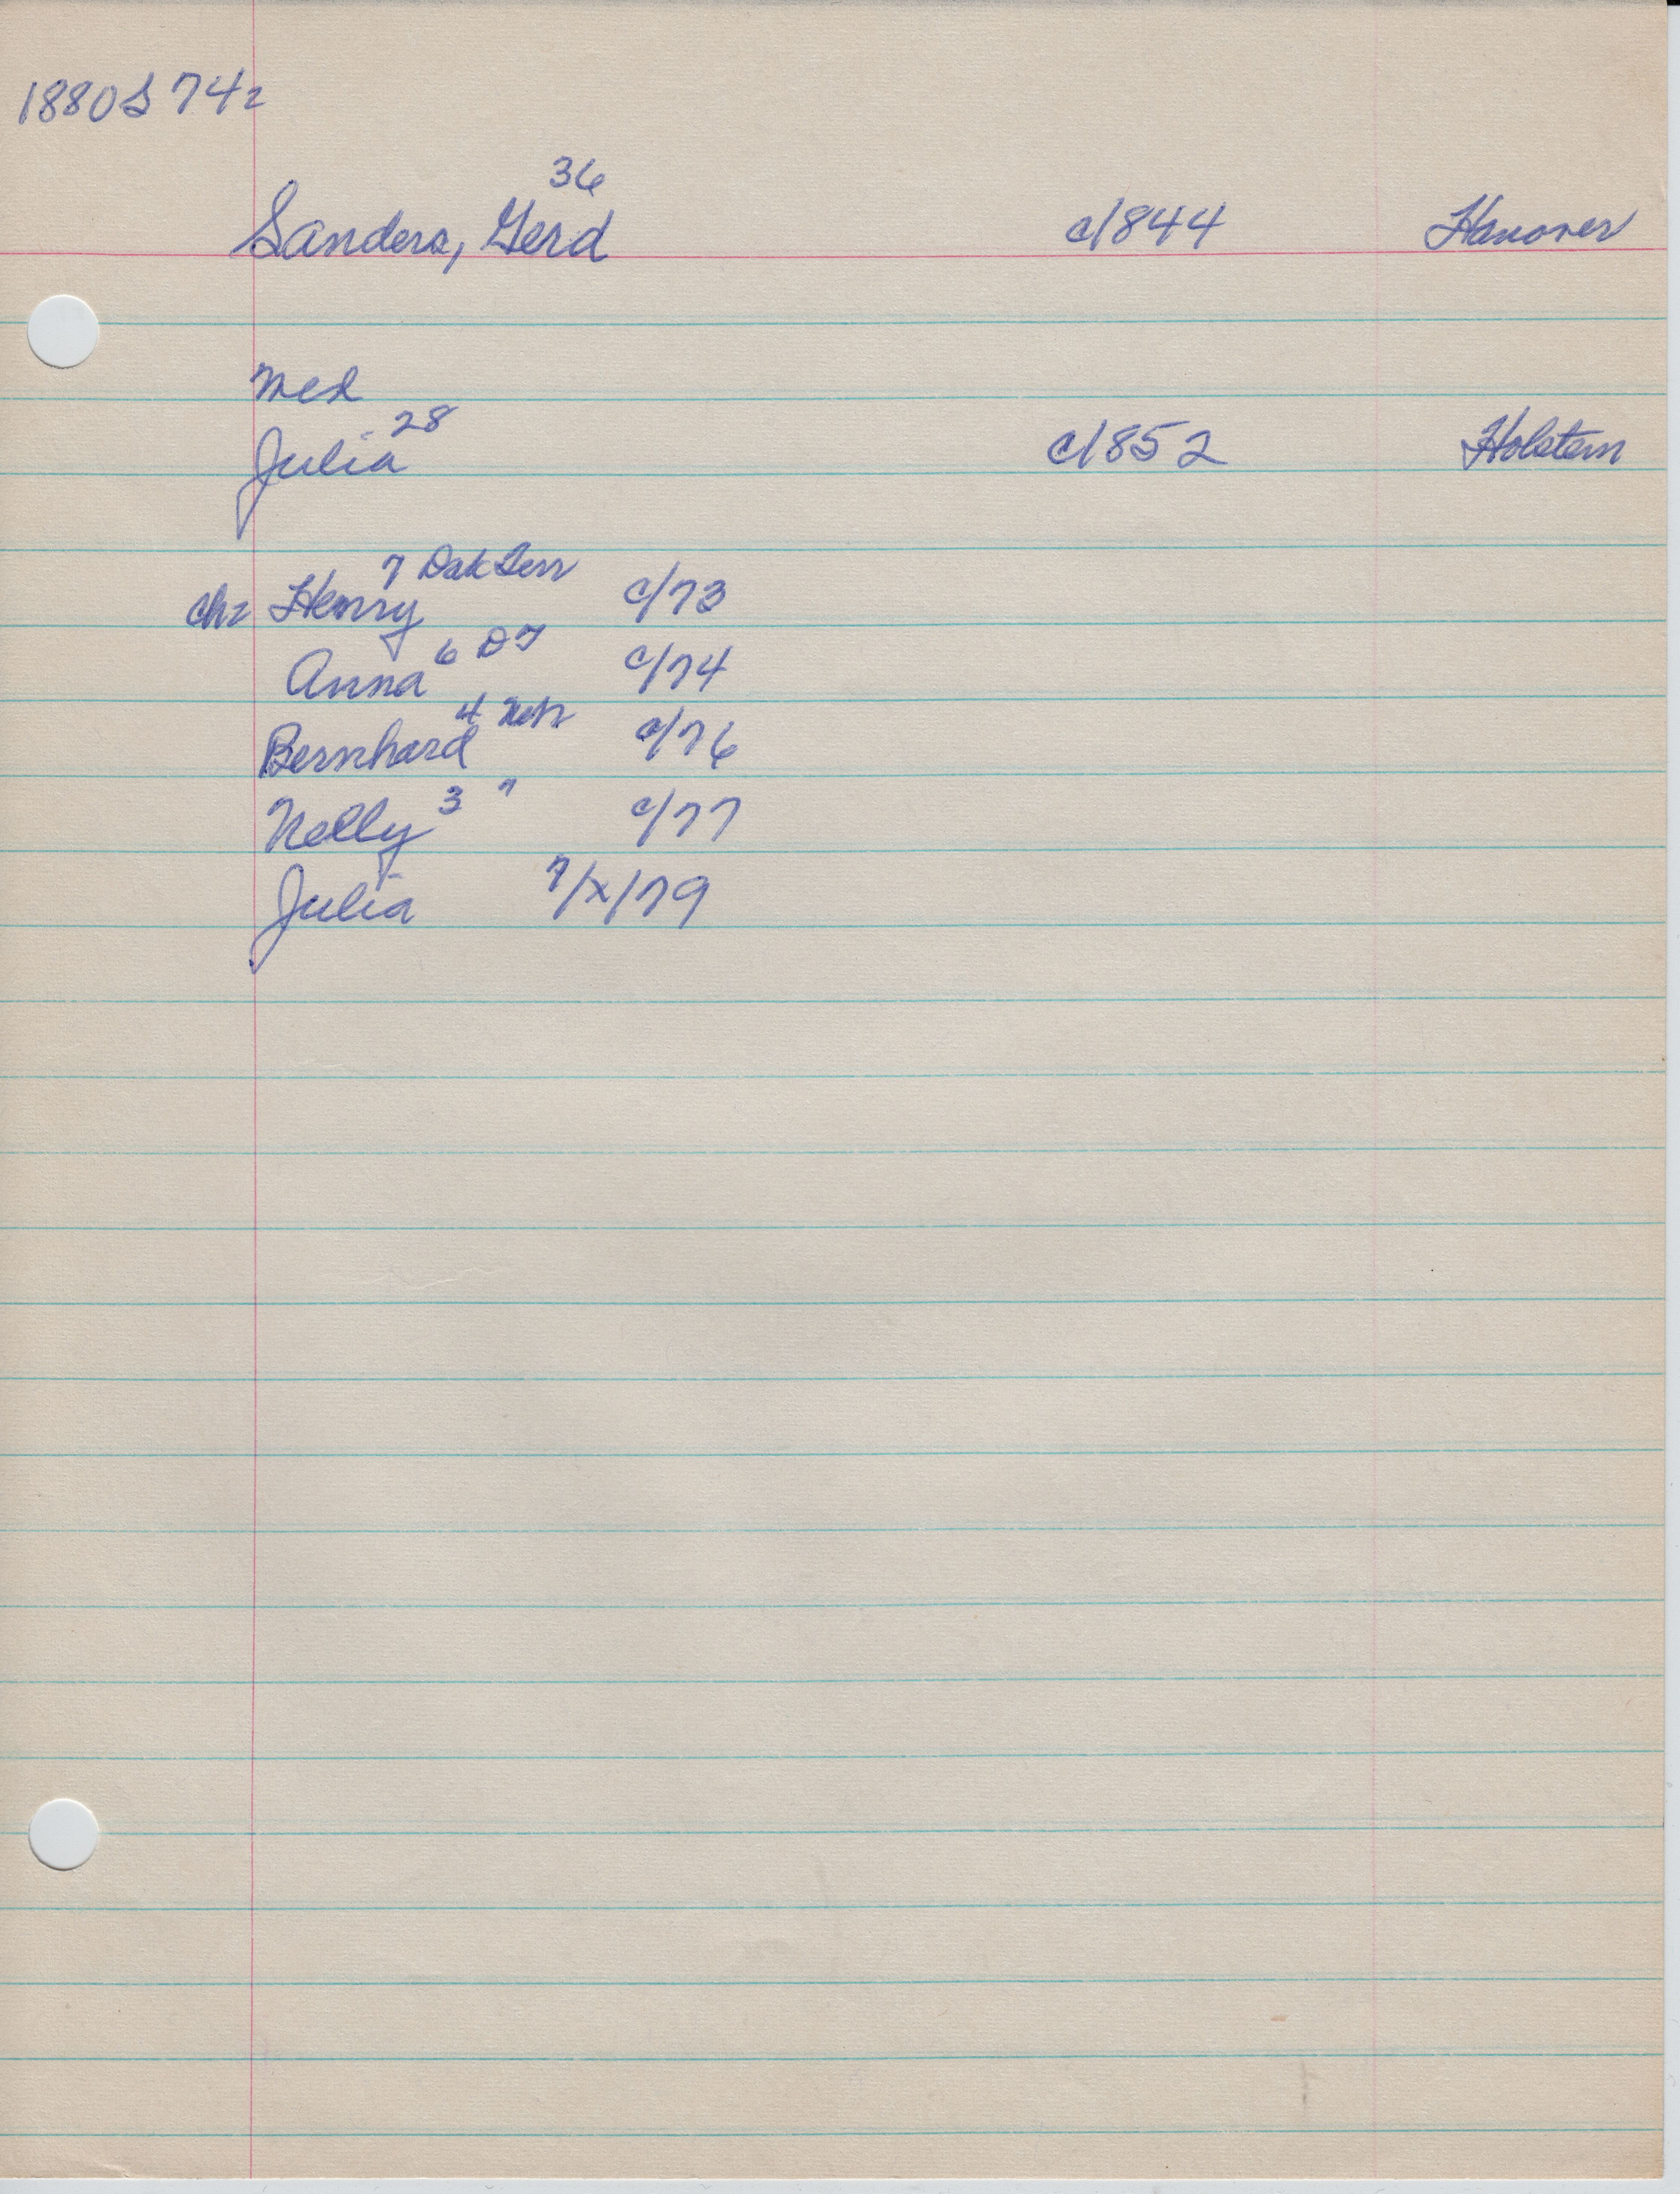 1880S 742
36
Sanders, Gerd c/1844 Hanover
med
28
Julia c/1852 Holstein
7 Dak Terr
ch: Henry c/73
6 DT
Anna c/74
4 Neb
Bernhard c/76
Nelly 3 " c/77
Julia 7/x/79